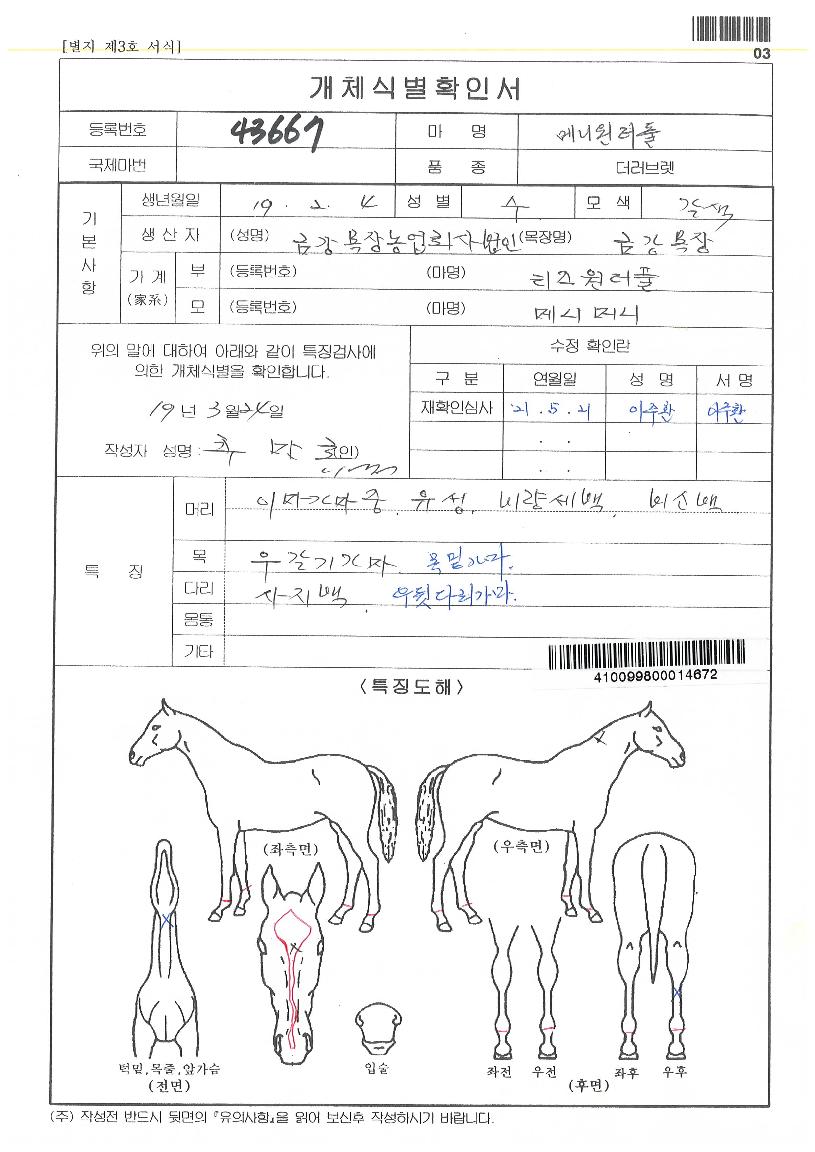 [별지 제3호 서식]
03
개체식별확인서
등록번호 43667 마 명 메니원더풀
국제마번 품 종 더러브렛
기본사항
생년월일 19 . 2 . 4 성 별 수 모 색 갈색
생 산 자 (성명) 금강목장농업회사법인 (목장명) 금강목장
가 계 (家系) 부 (등록번호) (마명) 리즈원더풀
모 (등록번호) (마명)
위의 말에 대하여 아래와 같이 특징검사에
의한 개체식별을 확인합니다.
19 년 3 월 24 일
작성자 성명 : (인)
수정 확인란
구 분 연월일 성 명 서 명
재확인심사 21 . 5 . 21 이주환 이주환
. .
. .
특 징
머리 이마가마중. 유성. 비량세백. 비소백
목 우갈기가마. 목밑가마.
다리 사지백. 우뒷다리가마.
몸통
기타
410099800014672
<특징도해>
(좌측면) (우측면)
턱밑,목줄,앞가슴
(전면)
입술
좌전 우전 좌후 우후
(후면)
(주) 작성전 반드시 뒷면의 『유의사항』을 읽어 보신후 작성하시기 바랍니다.